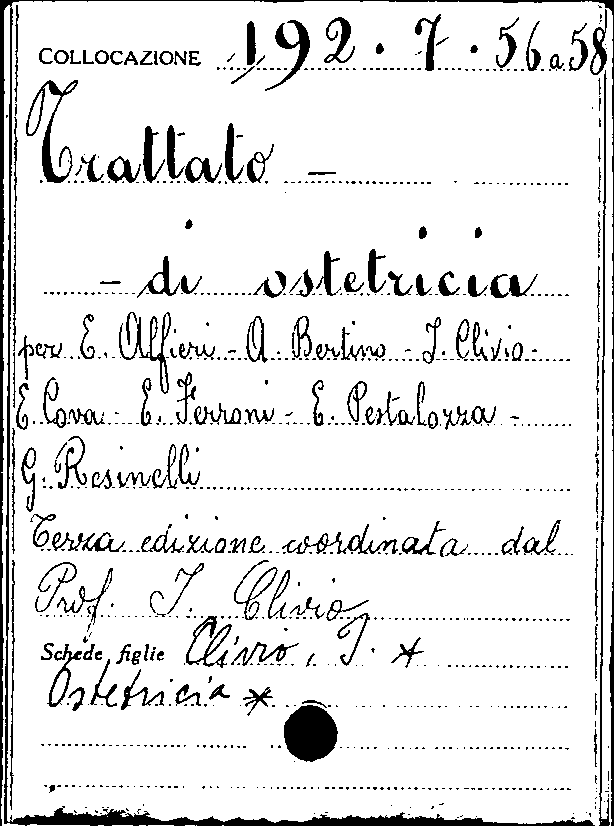 COLLOCAZIONE 192.7.56a58
Trattato -
- di ostetricia
per E. Alfieri - A. Bertino - I. Clivio -
E. Cova - E. Ferroni - E. Pestalozza -
G. Resinelli
Terza edizione coordinata dal
Prof. I. Clivio
Schede figlie Clivio, I. *
Ostetricia *